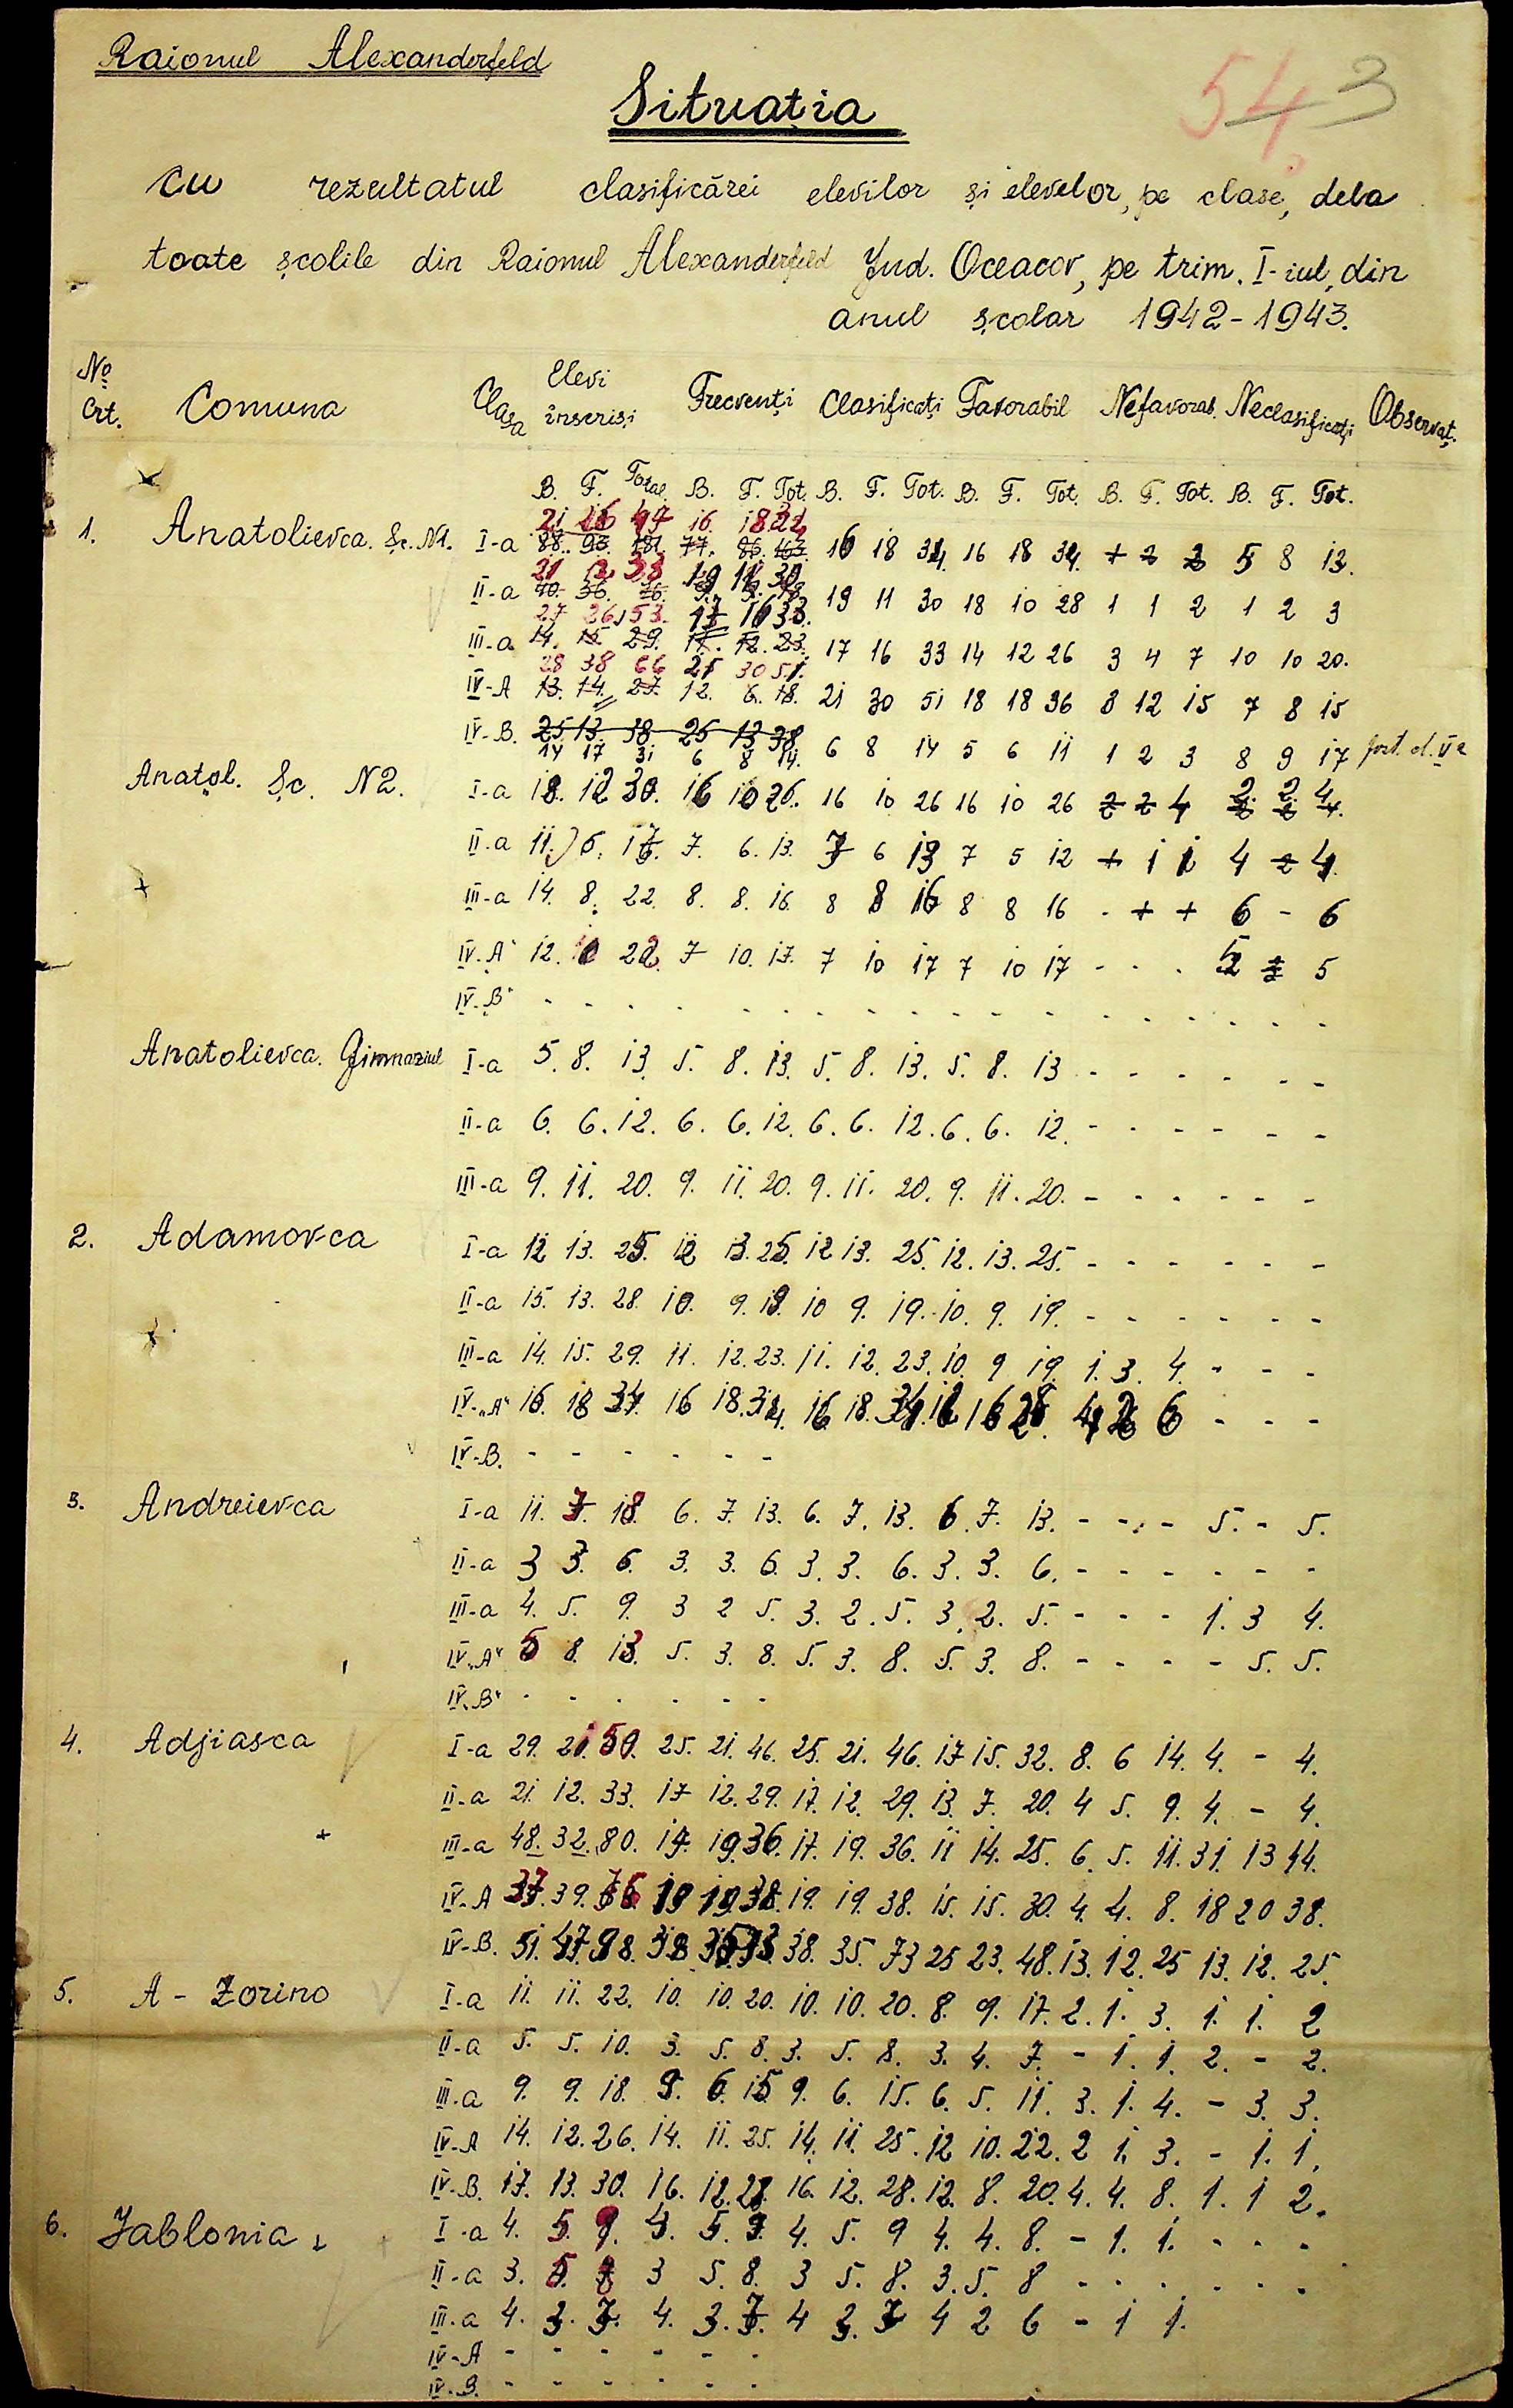 Raionul Alexanderfeld
54 3
Situația
cu rezultatul clasificărei elevilor și elevelor, pe clase, dela
toate școlile din Raionul Alexanderfeld Jud. Oceacov, pe trim. I-iul, din
anul școlar 1942-1943.
No Crt. Comuna Clasa Elevi înscriși Frecvenți Clasificați Favorabil Nefavorab. Neclasificați Observaț.
B. F. Total B. F. Tot. B. F. Tot. B. F. Tot. B. F. Tot. B. F. Tot.
21 26 47 16. 18 34
1. Anatolievca. Șc. N1. I-a 88. 93. 181. 77. 86. 163. 16 18 34. 16 18 34. 5 8 13.
21 12 33 19 11 30
II-a 40. 36. 76. 19 11 30 18 10 28 1 1 2 1 2 3
27 26 53. 17 16 33.
III-a 14. 15 29. 11. 12. 23. 17 16 33 14 12 26 3 4 7 10 10 20.
28 38 66 21 30 51.
IV-A 13. 14. 27. 12. 6. 18. 21 30 51 18 18 36 8 12 15 7 8 15
IV-B. 25 13. 38 25 13 38
14 17 31 6 8 14. 6 8 14 5 6 11 1 2 3 8 9 17 fost. cl. V a
Anatol. Șc. N2. I-a 18. 12 30. 16 10 26. 16 10 26 16 10 26 2 2 4 2. 2. 4.
II-a 11. 6. 17. 7. 6. 13. 7 6 13 7 5 12 + 1 1 4 4.
III-a 14. 8. 22. 8. 8. 16. 8 8 16 8 8 16 - + + 6 - 6
IV-"A" 12. 10 22. 7 10. 17. 7 10 17 7 10 17 - - - 5 5
IV-"B" - - - - - - - - - - - - - - - - - -
Anatolievca. Gimnaziul I-a 5. 8. 13. 5. 8. 13. 5. 8. 13. 5. 8. 13 - - - - - -
II-a 6. 6. 12. 6. 6. 12. 6. 6. 12. 6. 6. 12. - - - - - -
III-a 9. 11. 20. 9. 11. 20. 9. 11. 20. 9. 11. 20. - - - - - -
2. Adamovca I-a 12 13. 25. 12 13. 25. 12 13. 25. 12. 13. 25. - - - - - -
II-a 15. 13. 28. 10. 9. 19. 10 9. 19. 10. 9. 19. - - - - - -
III-a 14. 15. 29. 11. 12. 23. 11. 12. 23. 10. 9 19. 1. 3. 4. - - -
IV-"A" 16. 18 34. 16 18. 34. 16. 18. 34. 12 16 28. 4 2 6 - - -
IV-B. - - - - - -
3. Andreievca I-a 11. 7. 18. 6. 7. 13. 6. 7. 13. 6. 7. 13. - - - 5. - 5.
II-a 3 3. 6. 3. 3. 6. 3. 3. 6. 3. 3. 6. - - - - - -
III-a 4. 5. 9. 3 2 5. 3. 2. 5. 3. 2. 5. - - - 1. 3 4.
IV-"A" 5 8. 13. 5. 3. 8. 5. 3. 8. 5. 3. 8. - - - - 5. 5.
IV-"B" - - - - - -
4. Adjiasca I-a 29. 21 50. 25. 21. 46. 25. 21. 46. 17 15. 32. 8. 6 14. 4. - 4.
II-a 21. 12. 33. 17 12. 29. 17. 12. 29. 13. 7. 20. 4 5. 9. 4. - 4.
III-a 48. 32. 80. 17. 19. 36. 17. 19. 36. 11 14. 25. 6. 5. 11. 31. 13 44.
IV-A 37. 39. 76 19 19. 38. 19. 19. 38. 15. 15. 30. 4. 4. 8. 18 20 38.
IV-B. 51. 47. 98. 38 35 73 38. 35. 73 25 23. 48. 13. 12. 25 13. 12. 25.
5. A-Zorino I-a 11. 11. 22. 10. 10. 20. 10. 10. 20. 8. 9. 17. 2. 1. 3. 1. 1. 2
II-a 5. 5. 10. 3. 5. 8. 3. 5. 8. 3. 4. 7. - 1. 1. 2. - 2.
III-a 9. 9. 18. 9. 6. 15 9. 6. 15. 6. 5. 11. 3. 1. 4. - 3. 3.
IV-A 14. 12. 26. 14. 11. 25. 14. 11. 25. 12 10. 22. 2 1. 3. - 1. 1.
IV-B. 17. 13. 30. 16. 12. 28. 16. 12. 28. 12. 8. 20. 4. 4. 8. 1. 1 2.
6. Jablonia I-a 4. 5. 9. 4. 5. 9. 4. 5. 9 4. 4. 8. - 1. 1. - - -
II-a 3. 5. 8 3 5. 8. 3 5. 8. 3. 5. 8 - - - - - -
III-a 4. 3. 7. 4. 3. 7. 4 3. 7 4 2 6 - 1 1.
IV-A - - - - - -
IV-B. - - - - - -